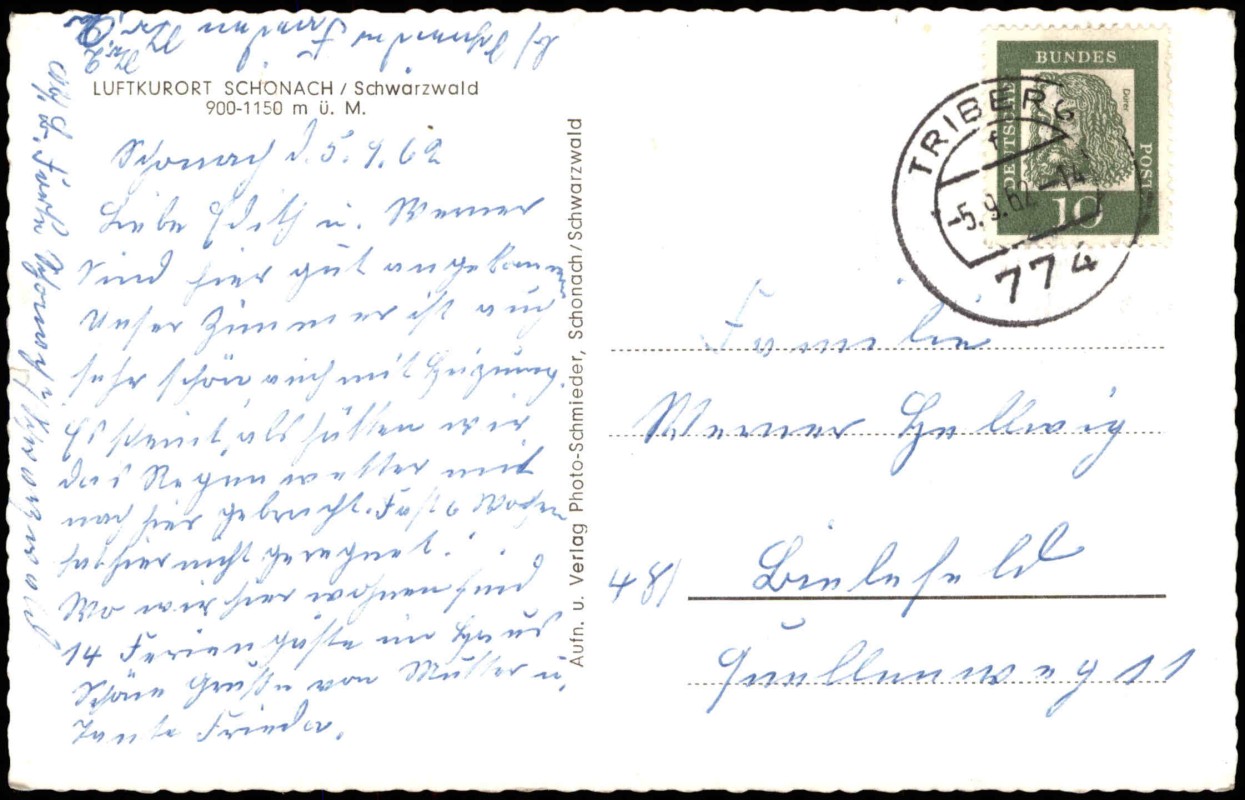 LUFTKURORT SCHONACH / Schwarzwald
900-1150 m ü. M.
Schonach d. 5. 9. 62
Liebe Edith u. Werner
Sind hier gut angekommen
Unser Zimmer ist auch
sehr schön auch mit Heizung.
Es scheint, als hätten wir
das Regenwetter mit
nach hier gebracht. Fast 6 Wochen
hat hier nicht geregnet.
Wo wir hier wohnen sind
14 Feriengäste im Haus
Schöne Grüße von Mutter u.
Tante Frieda.
Schonach / Schwarzwald
Aufn. u. Verlag Photo-Schmieder, Schonach/Schwarzwald
DEUTSCHE BUNDES POST
Dürer
10
TRIBERG
-5.9.62-14
774
Familie
Werner Hellwig
481 Bielefeld
Quellenweg 11